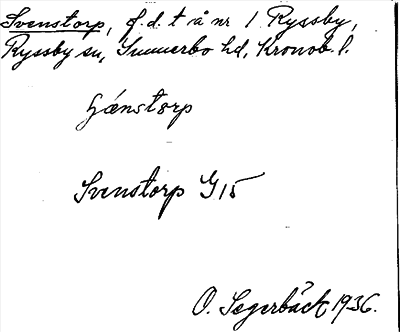 Svenstorp, f.d. t å nr 1 Ryssby,
Ryssby sn, Sunnerbo hd, Kronob. l.
Svenstorp G 15
O. Segerbäck 1936.